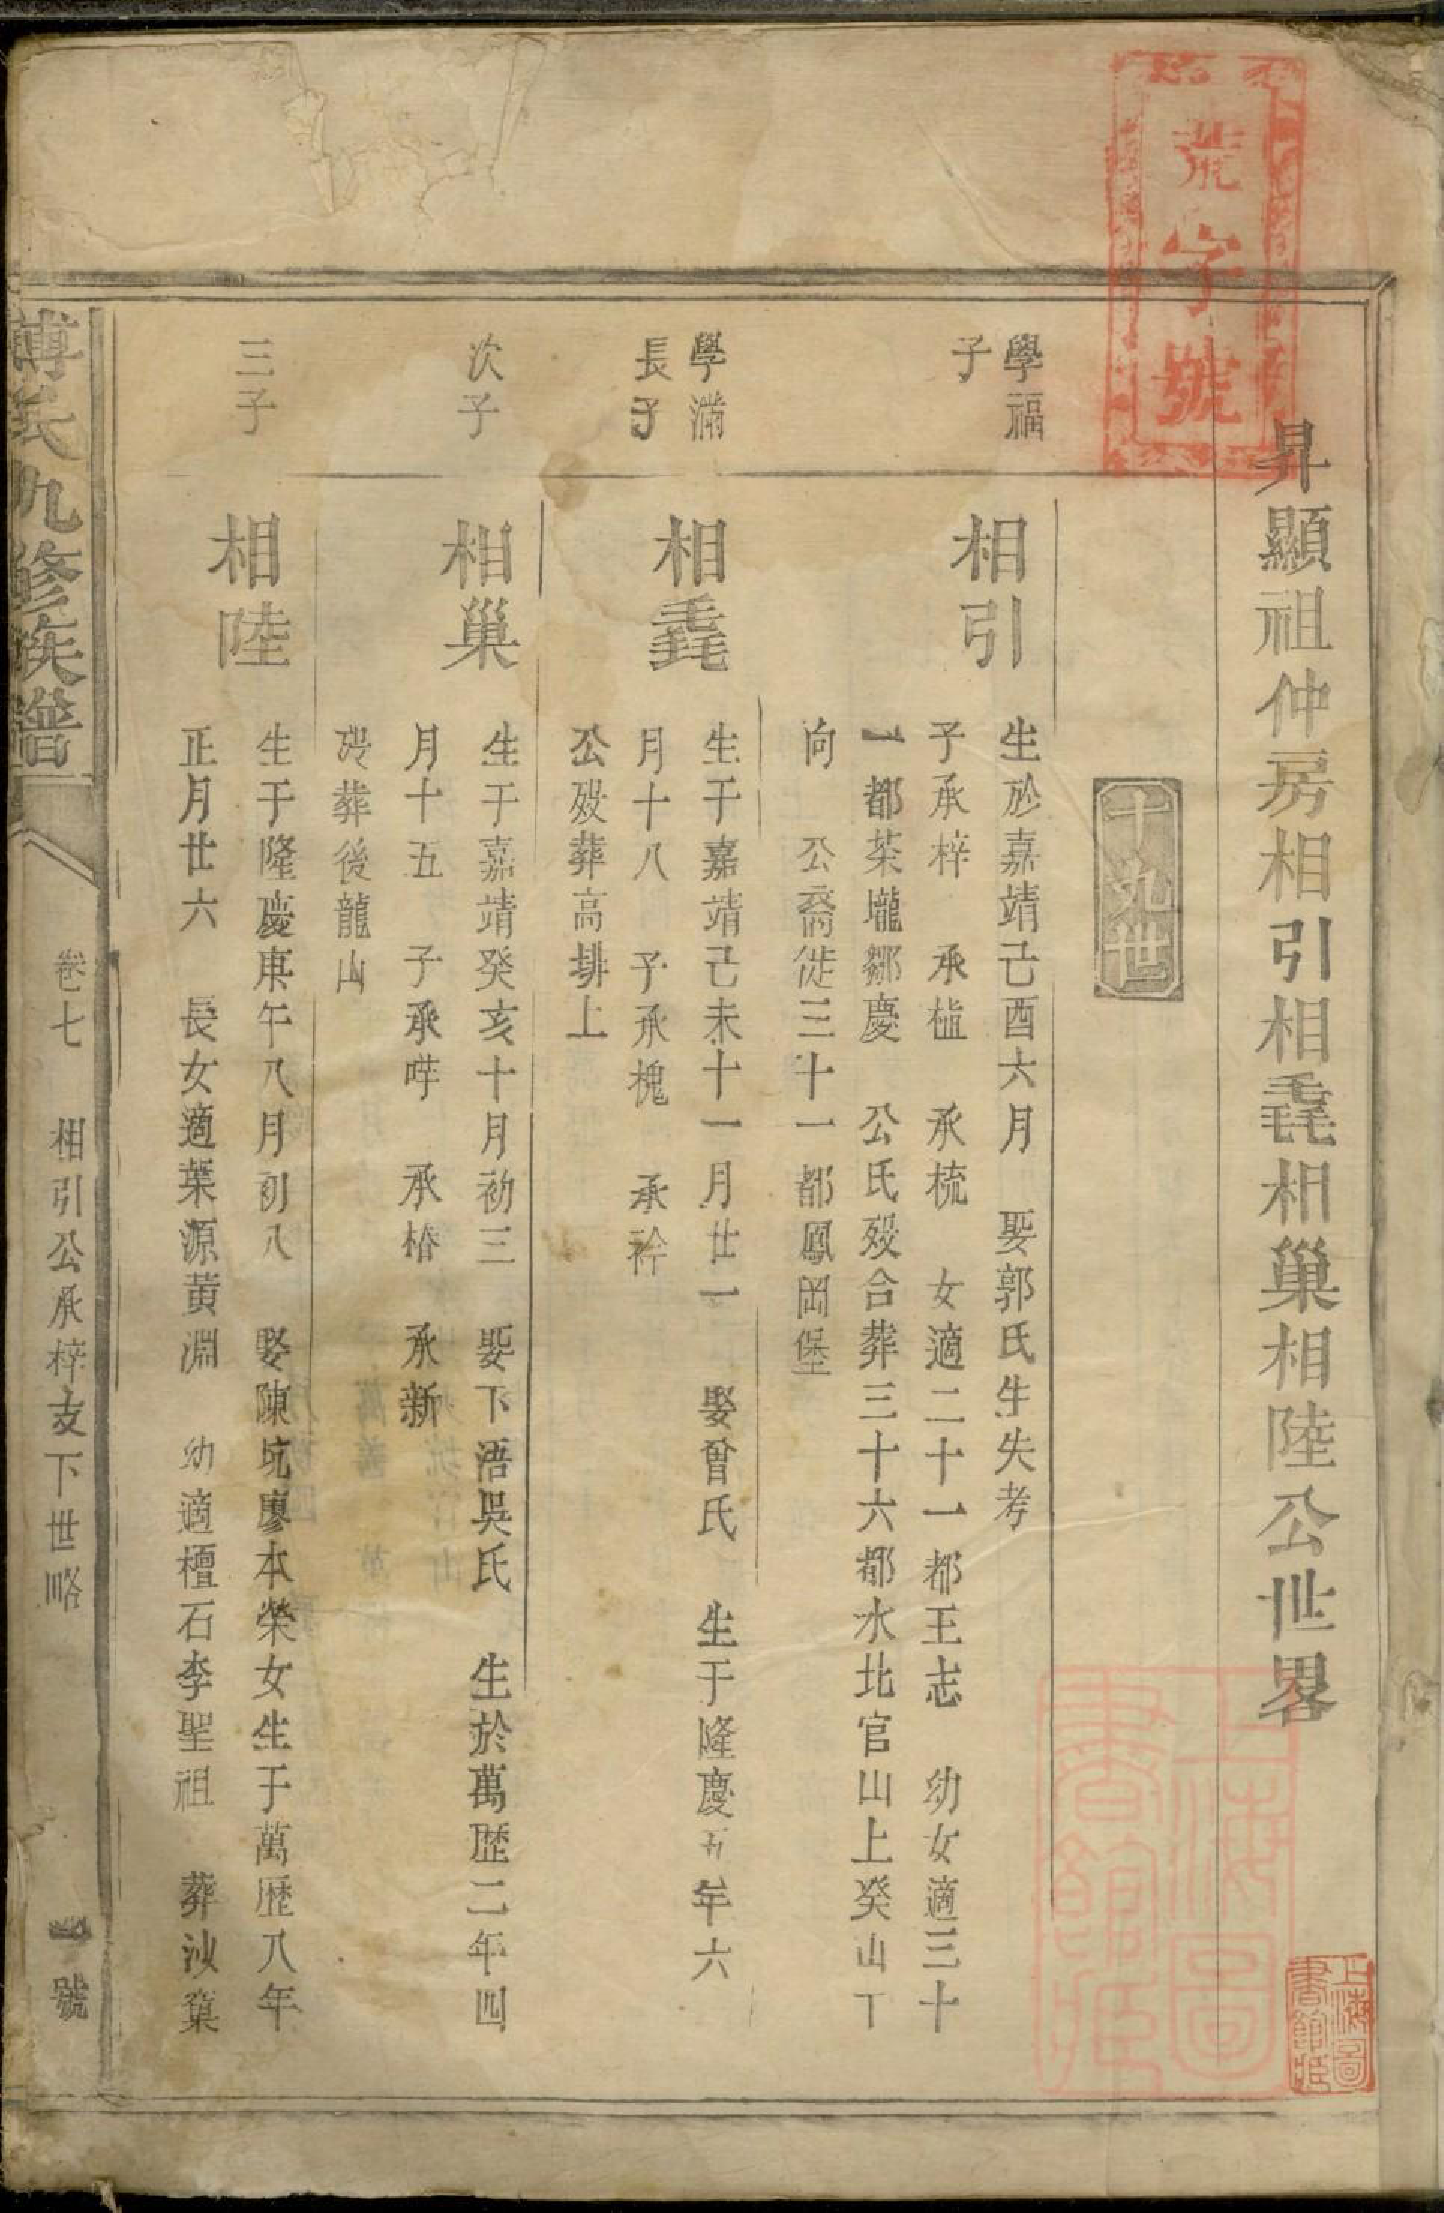 荒字號
昇顯祖仲房相引相毳相巢相陸公世畧
十九世
學福
子
相引
生於嘉靖己酉六月 娶郭氏生失考
子承梓 承植 承梳 女適二十一都王志 幼女適三十
一都茶壠鄒慶 公氏殁合葬三十六都水北官山上癸山丁
向 公裔徙三十一都鳳岡堡
學滿
長子
相毳
生于嘉靖己未十一月廿一 娶曾氏 生于隆慶五年六
月十八 子承槐 承衿
公殁葬高排上
次子
相巢
生于嘉靖癸亥十月初三 娶下浯吳氏 生於萬歴二年四
月十五 子承哶 承椿 承新
殁葬後龍山
三子
相陸
生于隆慶庚午八月初八 娶陳坑廖本榮女生于萬歴八年
正月廿六 長女適葉源黄淵 幼適檀石李聖祖 葬沙窠
傅氏九修族譜
卷七 相引公承梓支下世略
一號
上海圖書館藏
上海圖書館藏